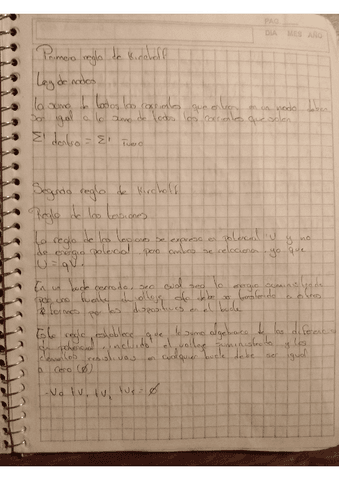 PAG
DIA MES AÑO
Primera regla de Kirchoff
Ley de nodos
La suma de todas las corrientes que entran en un nodo deben
ser igual a la suma de todas las corrientes que salen
Σ dentro = Σ Fuera
Segunda regla de Kirchoff
Regla de las tensiones
La regla de las tensiones se expresa en potencial V y no
de energia potencial pero ambas se relacionan ya que
U = qV.
En un bucle cerrado, sea cual sea la energia suministrada
por una fuente
por los dispositivos en el bucle
Esta regla establece que la suma algebraica de las diferencias
de potencial, incluido el voltaje suministrado y los
elementos resistivos en cualquier bucle debe ser igual
a cero (∅)
= ∅